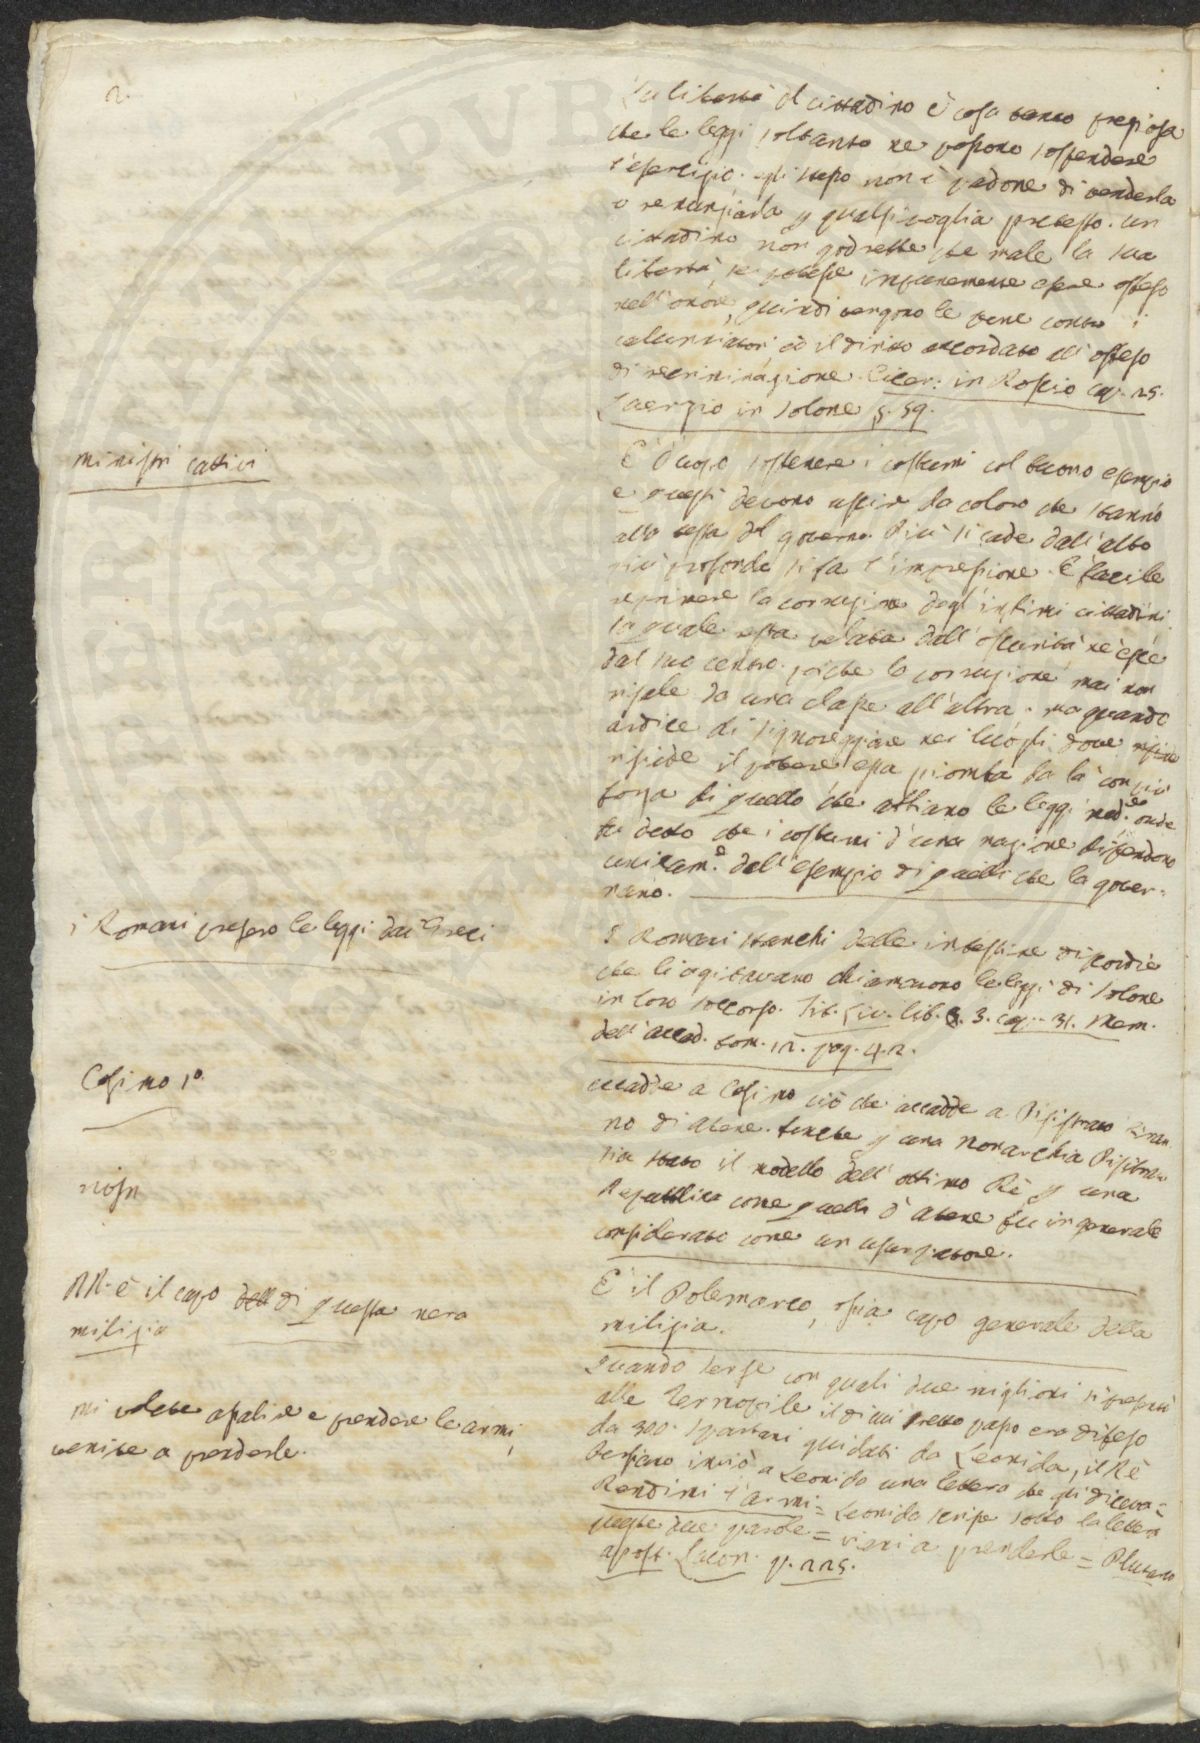 2.
La libertà del cittadino è cosa tanto preziosa
che le leggi soltanto ne possono sospendere
l'esercizio. egli stesso non è padone di venderla
o renunziarla p qualsivoglia pretesto. un
cittadino non godrebbe che male la sua
libertà, se potesse impunemente essere offeso
nell'onore, quindi vengono le pene contro i
calunniatori, ed il diritto accordato all'offeso
di recriminazione. Cicer: in Roscio cap. 25.
Laerzio in Solone §. 59.
ministri cattivi
È d'uopo sostenere i costumi col buono esempio
e questi devono uscire da coloro che stanno
alla testa del governo. Più si cade dall'alto
più profonda si fa l'impressione. È facile
reprimere la corruzione degl'infimi cittadini
la quale resta velata dall'oscurità nè esce
dal suo centro. poiche la corruzione mai non
risale da una classe all'altra. ma quando
ardisce di signoreggiare nei luoghi dove
risiede il potere essa piomba da là con più
forza di quello che abbiano le leggi med.e onde
fu detto che i costumi d'una nazione dipendono
unicam.e dall'esempio di quelli che la gover=
nano.
i Romani presero le leggi dai Greci
I Romani stanchi delle intestine discordie
che li agitavano chiamarono le leggi di Solone
in loro soccorso. Tit. Liv. lib. 3. cap. 31. Mem.
dell'accad. tom. 12. pag. 42.
Cosimo 1o.
accadde a Cosimo ciò che accadde a Pisistrato tiran
no di Atene. benche p una Monarchia Pisistrato
sia stato il modello dell'ottimo Rè p una
Repubblica come quella d'Atene fu in generale
considerato come un usurpatore.
RR. è il capo dell di questa nera
milizia
È il Polemarco, ossia capo generale della
milizia.
mi volete assalire e prendere le armi,
venite a prenderle.
Quando Serse con quasi due миglioni si presentò
alle Termopile il di cui stretto passo era difeso
da 300. Spartani guidati da Leonida, il Rè
Persiano inviò a Leonida una lettera che gli diceva=
Rendimi l'armi = Leonida scrisse sotto la lettera
queste due parole = vieni a prenderle = Plutarco
apoft. Lacon. p. 225.